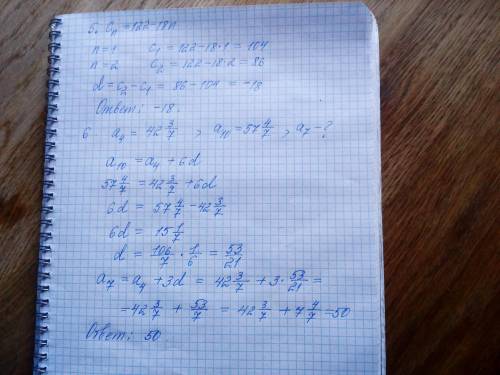 5. Cₙ = 122-18n
n=1 C₁ = 122-18·1 = 104
n=2 C₂ = 122-18·2 = 86
d = C₂ - C₁ = 86 - 104 = -18
Ответ: -18.
6 a₄ = 42 3/7 , a₁₀ = 57 4/7 , a₇ - ?
a₁₀ = a₄ + 6d
57 4/7 = 42 3/7 + 6d
6d = 57 4/7 - 42 3/7
6d = 15 1/7
d = 106/7 · 1/6 = 53/21
a₇ = a₄ + 3d = 42 3/7 + 3 · 53/21 =
= 42 3/7 + 53/7 = 42 3/7 + 7 4/7 = 50
Ответ: 50